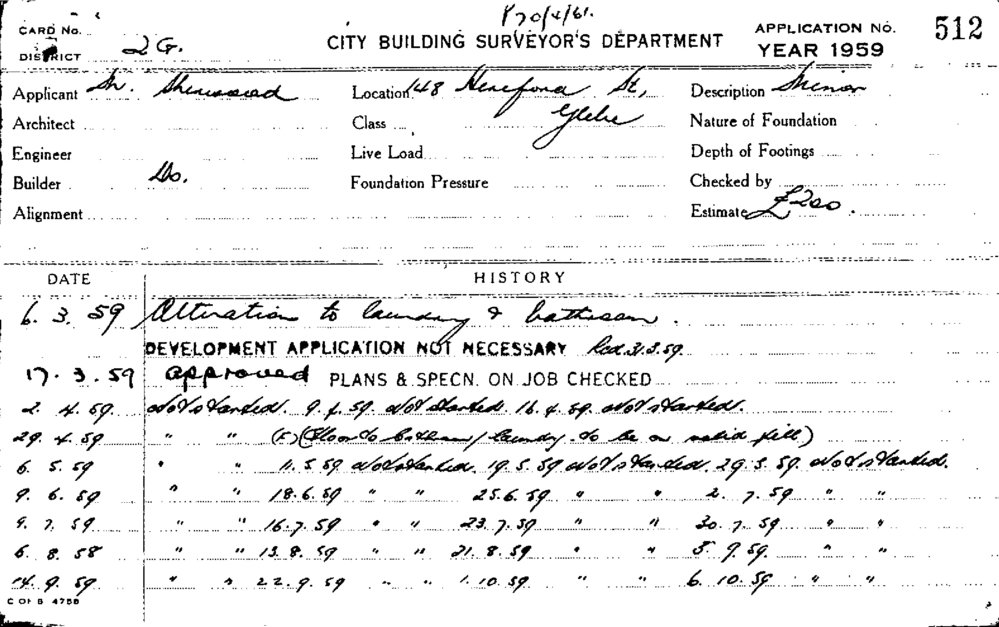 20/4/61.
CARD No.
DISTRICT 2G.
CITY BUILDING SURVEYOR'S DEPARTMENT
APPLICATION No. 512
YEAR 1959
Applicant Location 148 Hereford St, Description Minor
Architect Class Glebe Nature of Foundation
Engineer Live Load Depth of Footings
Builder Do. Foundation Pressure Checked by
Alignment Estimate £200.
DATE HISTORY
6. 3. 59 Alteration to laundry & bathroom.
DEVELOPMENT APPLICATION NOT NECESSARY Rcd. 31.3.59.
17. 3. 59 approved PLANS & SPECN. ON JOB CHECKED
2. 4. 59. Not started. 9. 4. 59. Not started. 16. 4. 59. Not started.
29. 4. 59 " " (Floor to bathrm/laundry to be on solid fill)
6. 5. 59 " " 11. 5. 59 Not started. 19. 5. 59 Not started. 29. 5. 59. Not started.
9. 6. 59 " " 18. 6. 59 " " 25. 6. 59 " " 2. 7. 59 " "
9. 7. 59 " " 16. 7. 59 " " 23. 7. 59 " " 30. 7. 59 " "
6. 8. 58 " " 13. 8. 59 " " 21. 8. 59 " " 5. 9. 59. " "
14. 9. 59. " " 22. 9. 59 " " 1. 10. 59. " " 6. 10. 59 " "
C OF S 4758